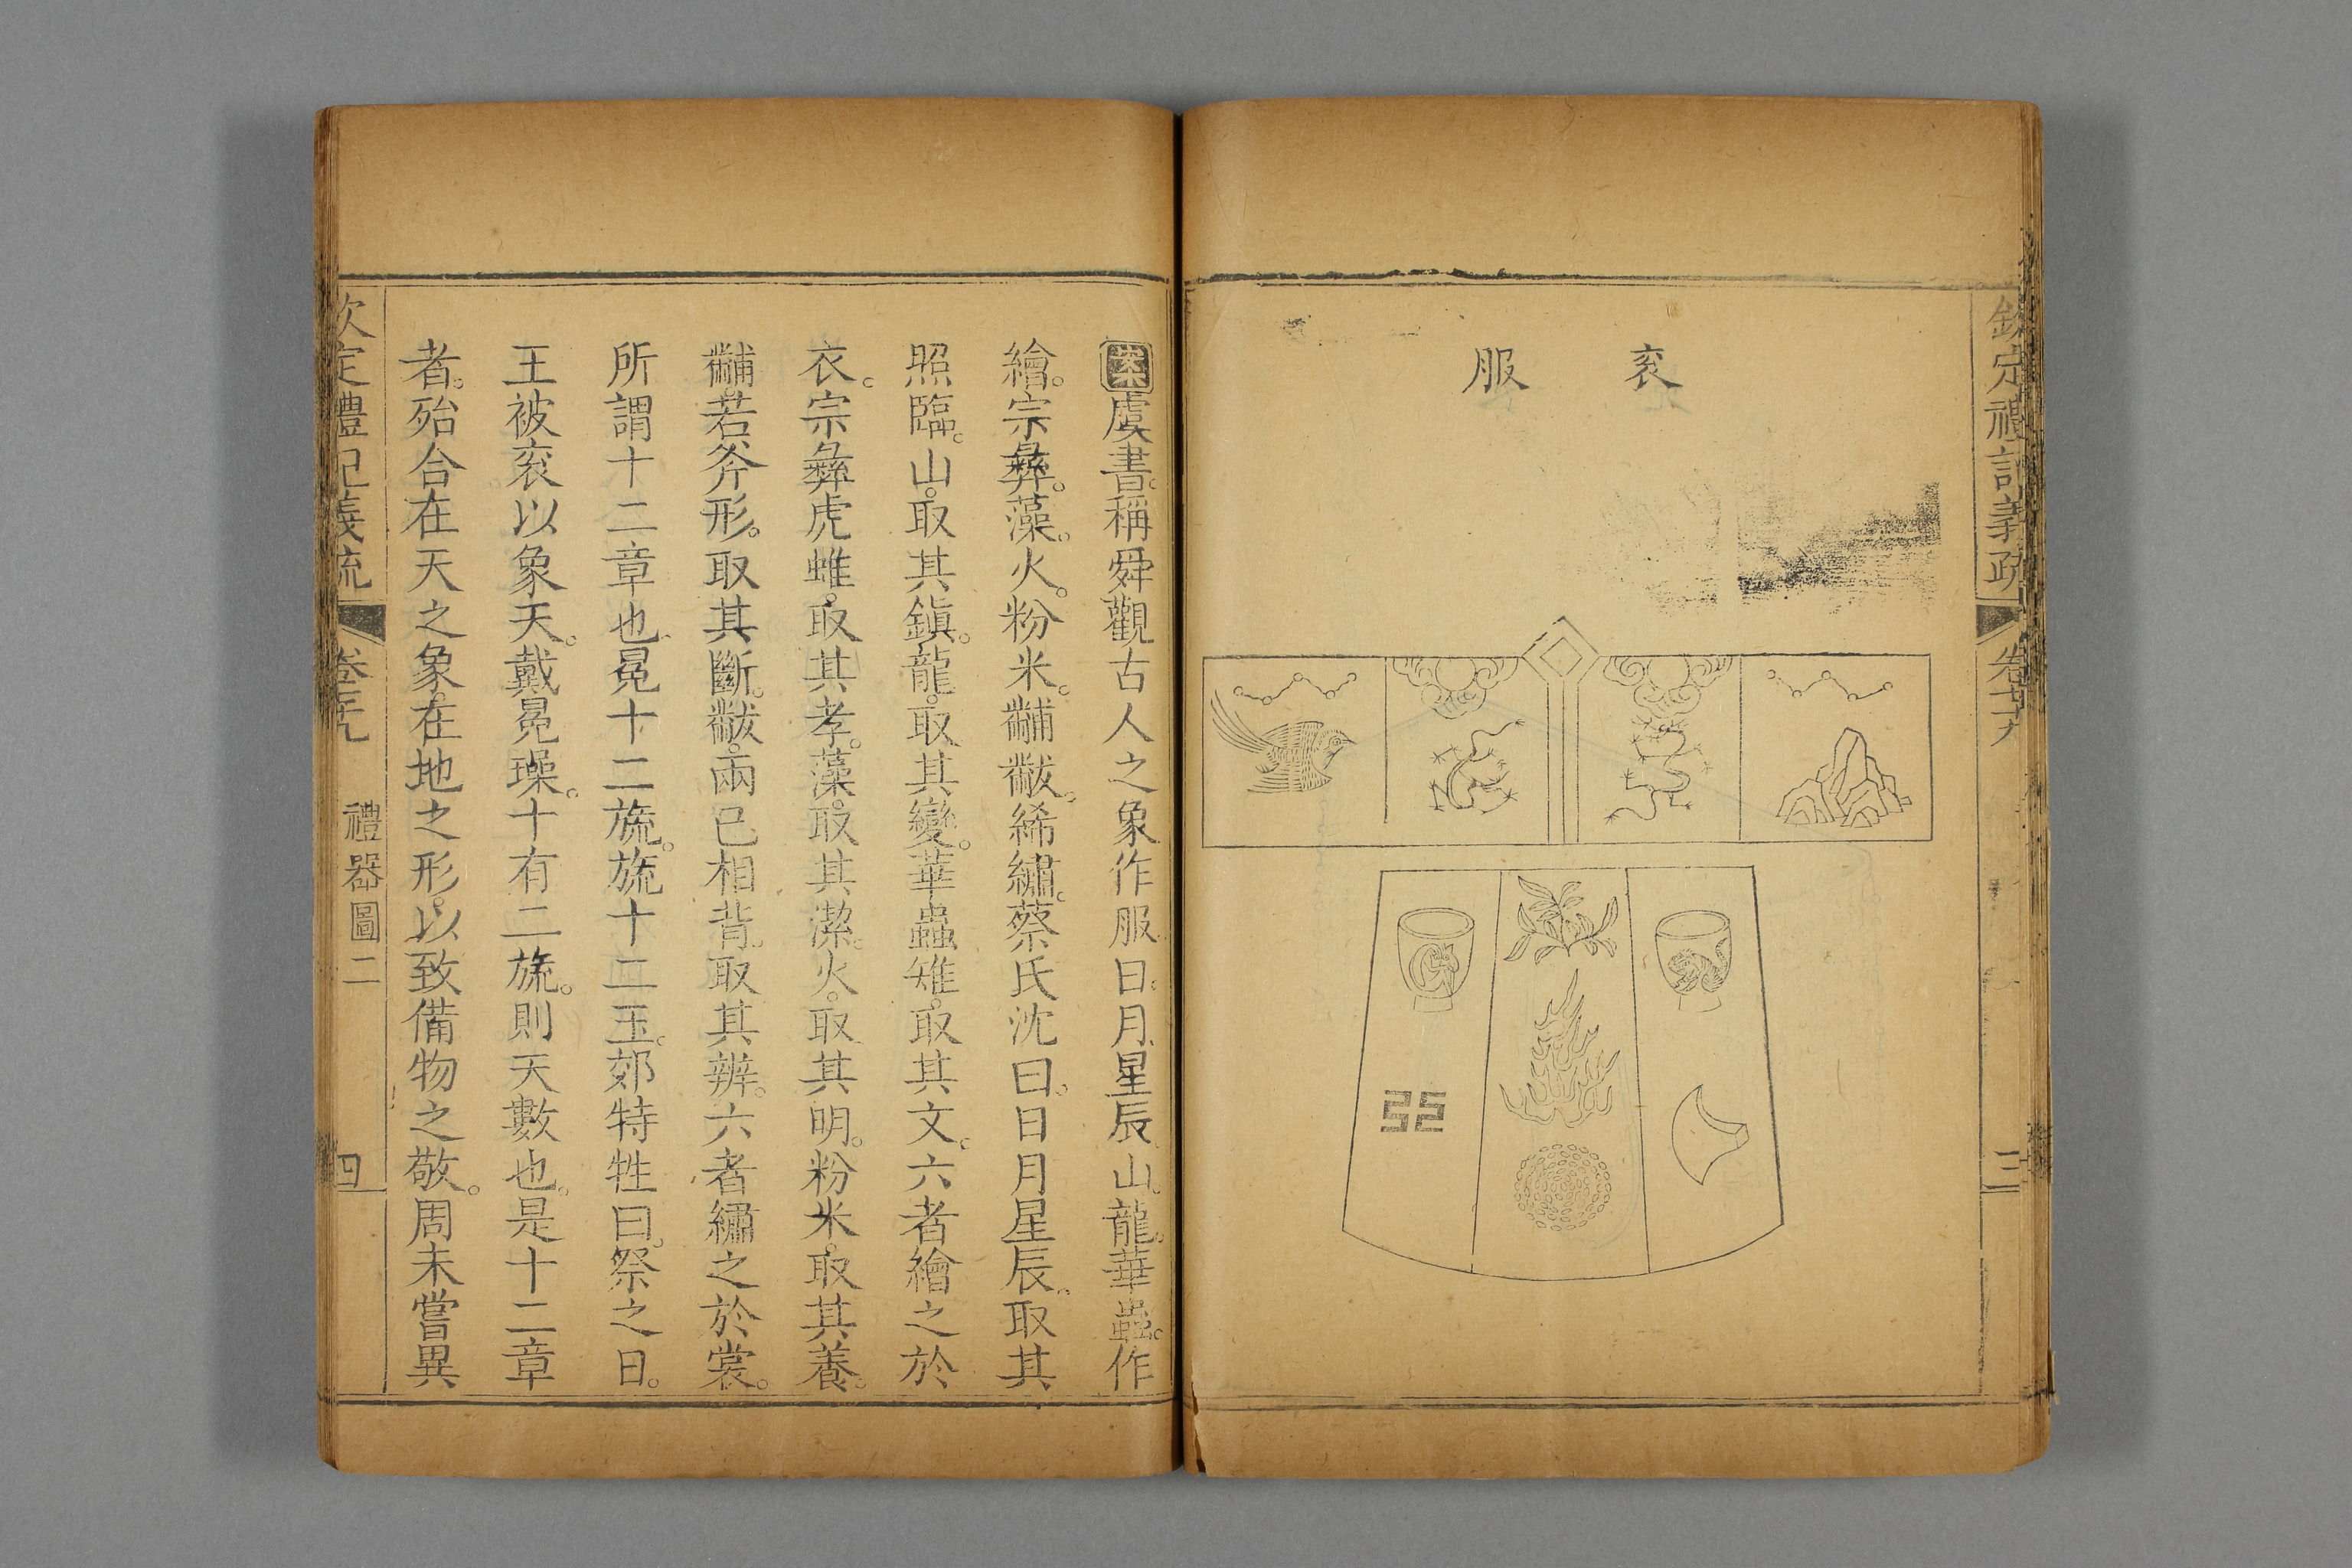 欽定禮記義疏
三
袞服
案虞書。稱舜觀古人之象作服。日。月。星辰。山。龍。華蟲。作
繪。宗彝。藻。火。粉米。黼黻。絺繡。蔡氏沈曰。日月星辰。取其
照臨。山。取其鎮。龍。取其變。華蟲雉。取其文。六者繪之於
衣。宗彝虎蜼。取其孝。藻。取其潔。火。取其明。粉米。取其養。
黼。若斧形。取其斷。黻。兩已相背。取其辨。六者繡之於裳。
所謂十二章也。冕十二旒。旒十二玉。郊特牲曰。祭之日。
王被袞以象天。戴冕璪。十有二旒。則天數也。是十二章
者。殆合在天之象。在地之形。以致備物之敬。周未嘗異
欽定禮記義疏
禮器圖二
四